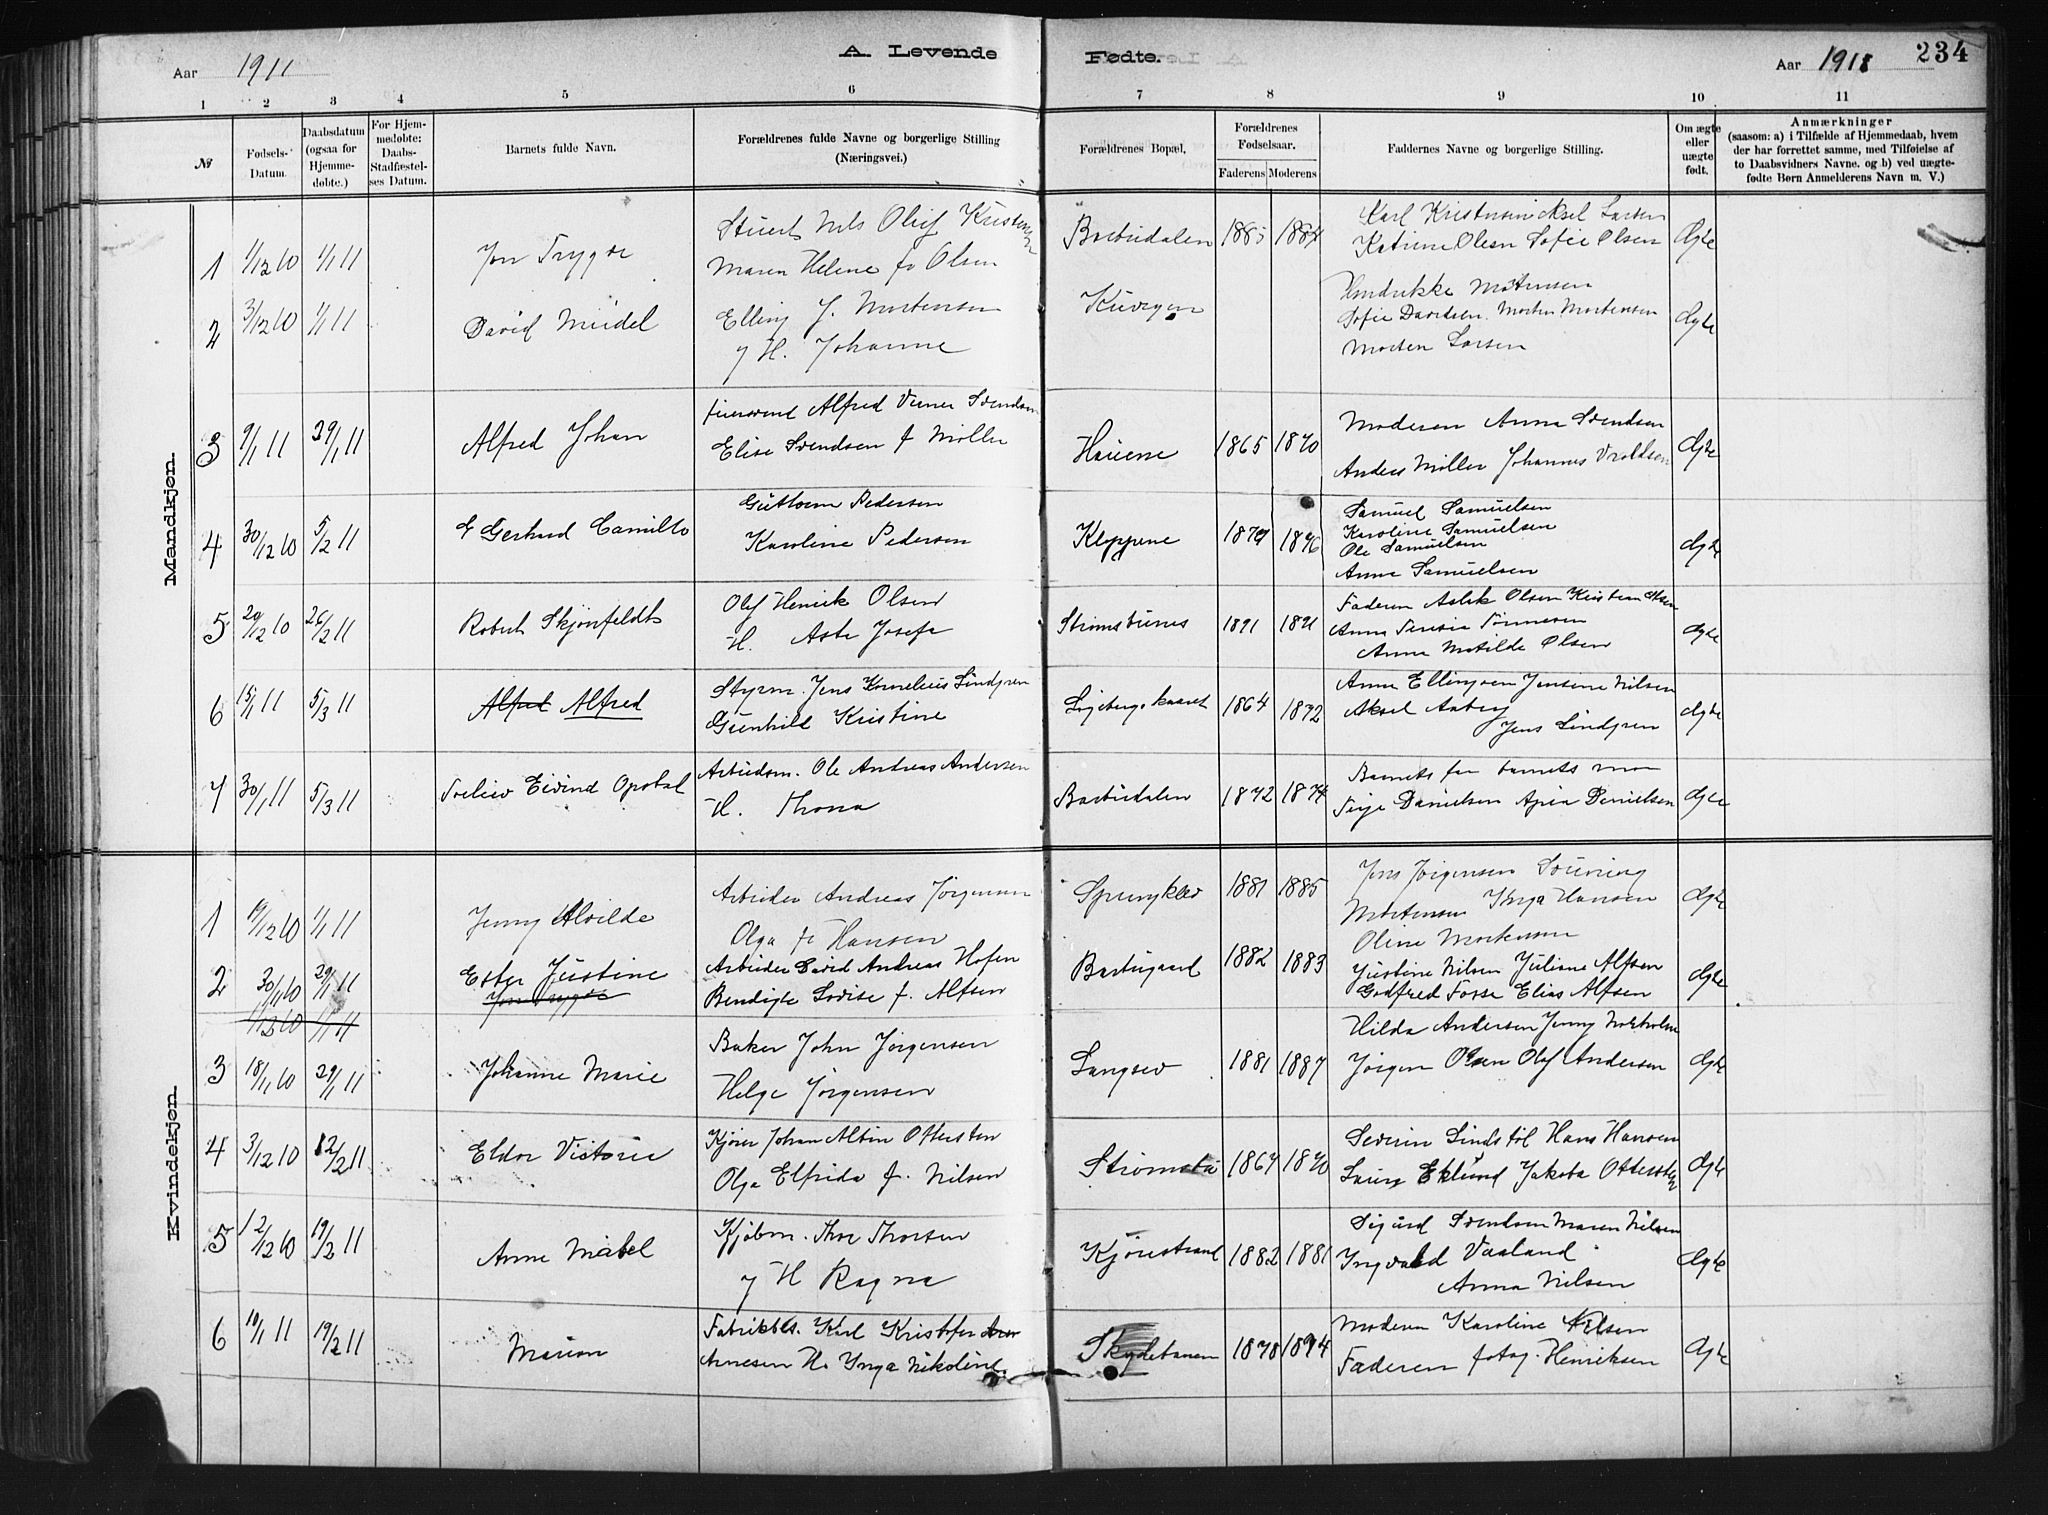 Aar 1911
A. Levende
Fødte.
Aar 1911
234
1 2 3 4 5 6 7 8 9 10 11
№
Fødsels-Datum.
Daabsdatum (ogsaa for Hjemme-døbte.)
For Hjem-medøbte: Daabs-Stadfæstel-ses Datum.
Barnets fulde Navn.
Forældrenes fulde Navne og borgerlige Stilling (Næringsvei.)
Forældrenes Bopæl.
Forældrenes Fødselsaar.
Faderens Moderens
Faddernes Navne og borgerlige Stilling.
Om ægte eller uægte født.
Anmærkninger
(saasom: a) i Tilfælde af Hjemmedaab, hvem
der har forrettet samme, med Tilføielse af
to Daabsvidners Navne. og b) ved uægte-
fødte Børn Anmelderens Navn m. V.)
Mandkjøn.
1 1/12 10 1/1 11 Jon Trygve
Stuert Nils Oluf Kristensen
Maren Helene f. Olsen
Barbudalen 1885 1884
Karl Kristensen Aksel Larsen
Katrine Olsen Sofie Olsen
Ægte
2 3/12 10 1/1 11 David Meidel
Elling J. Mortensen
H. Johanne
Kuvigen
Hendrikke Mortensen
Sofie Davidsen. Morten Mortensen
Morten Larsen
Ægte
3 9/1 11 29/1 11 Alfred Johan
Alfred Verner Svendsen
Elise Svendsen f. Møller
Hauene 1865 1870
Moderen Anna Svendsen
Anders Møller Johannes
Ægte
4 30/12 10 5/2 11 Gerhard Camillo
Guttorm Pedersen
Karoline Pedersen
Kleppene 1879 1876
Samuel Samuelsen
Karoline Samuelsen
Ole Samuelsen
Anne Samuelsen
Ægte
5 20/12 10 26/2 11 Robert Skjønfeldt
Olaf Henrik Olsen
H. Josefa
Strømsbunes 1891 1891
Faderen Aslak Olsen Kristian Olsen
Anna Teresia Tønnesen
Anna Matilde Olsen
Ægte
6 15/1 11 5/3 11 Alfred Alfred
Styrm. Jens Kornelius Lindgren
Gunhild Kristine
1864 1872
Anna Ellingsen Jensine Nilsen
Aksel Aaberg
Jens Lindgren
Ægte
7 30/1 11 5/3 11 Torleiv Eivind Opstal
Arbeidsm. Ole Andreas Andersen
H. Thona
Barbudalen 1872 1874
Barnets far barnets mor
Terje Danielsen Danielsen
Ægte
Kvindekjøn.
1 1/1 11 Jenny Alvilde
Arbeider Andreas Jørgensen
Olga f. Hansen
Sprængklev 1881 1885
Jens Jørgensen
Mortensen Inga Hansen
Oline Mortensen
Ægte
2 30/11 10 29/1 11 Ester Justine
Arbeider David Andreas Hofen
Bendigte Lovise f. Alfsen
Barbugaard 1882 1883
Justine Nilsen Juliane Alfsen
Godfred Fosse Elias Alfsen
Ægte
1/12 10 1/1 11 Jon Trygve
3 18/11 10 29/1 11 Johanne Marie
Baker John Jørgensen
Helga Jørgensen
Langsev 1881 1887
Hilda Andersen Jenny
Jørgen Olsen Olaf Andersen
Ægte
4 3/12 10 12/2 11 Eldor Victorie
Kjører Johan Albin Ottersten
Olga Elfrida f. Nilsen
Strømsbu 1867 1870
Severin Lindstøl Hans Hansen
Laura Eklund Jakoba Ottersten
Ægte
5 12/12 10 19/2 11 Anne Mabel
Kjøbm. Thor Thorsen
H Ragna
Kjørestrand 1882 1881
Sigurd Svendsen Maren Nilsen
Ingvald Vaaland
Anna Nilsen
Ægte
6 10/1 11 19/2 11 Marion
Fabrikbes. Karl Kristofer
Arnesen H. Inga Nikoline.
Skydebanen 1878 1894
Moderen Karoline Nilsen
Faderen fotog. Henriksen
Ægte